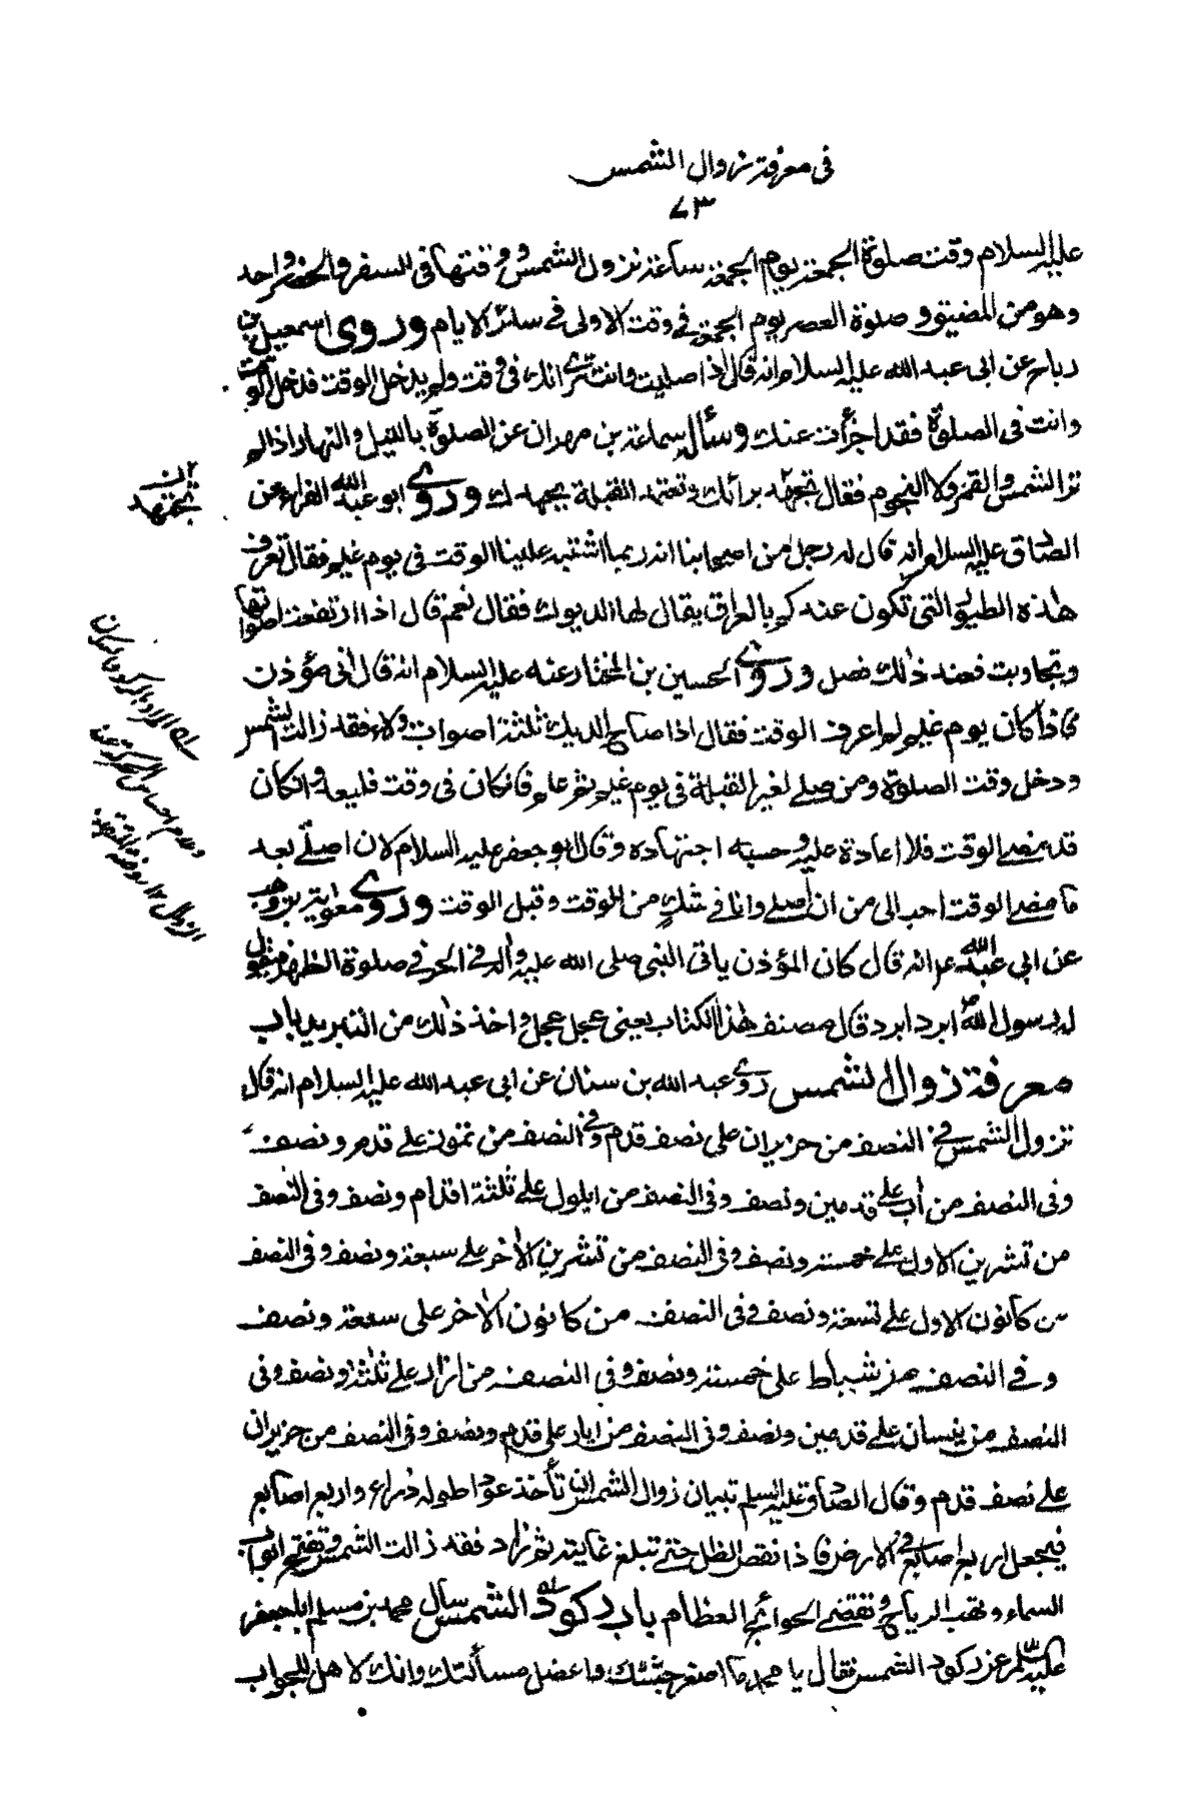 فى معرفة زوال الشمس
٧٣
عليه السلام وقت صلوة الجمعة يوم الجمعة ساعة تزول الشمس ووقتها فى السفر والحضر واحد
وهو من المضيق وصلوة العصر يوم الجمعة فى وقت الاولى فى سائر الايام وروى اسمعيل بن
رباح عن ابى عبد الله عليه السلام انه قال اذا صليت وانت ترى انك فى وقت ولم يدخل الوقت فدخل الوقت
وانت فى الصلوة فقد اجزأت عنك وسأل سماعة بن مهران عن الصلوة بالليل والنهار اذا لم
تر الشمس والقمر ولا النجوم فقال تجهد برأيك وتعتمد القبلة بجهدك وروى ابو عبد الله الفراء عن
ان
تجتهد
الصادق عليه السلام انه قال له رجل من اصحابنا انه ربما اشتبه علينا الوقت فى يوم غيم فقال تعرف
هذه الطيور التى تكون عندكم بالعراق يقال لها الديوك فقال نعم قال اذا ارتفعت اصواتها
وتجاوبت فعند ذلك فصل وروى الحسين بن المختار عنه عليه السلام انه قال انى مؤذن
فاذا كان يوم غيم لم اعرف الوقت فقال اذا صاح الديك ثلثة اصوات ولاء فقد زالت الشمس
ودخل وقت الصلوة ومن صلى لغير القبلة فى يوم غيم ثم علم فان كان فى وقت فليعد وان كان
قد مضى الوقت فلا اعادة عليه وحسبه اجتهاده وقال ابو جعفر عليه السلام لان اصلى بعد
ما مضى الوقت احب الى من ان اصلى وانا فى شك من الوقت وقبل الوقت وروى معوية بن وهب
عن ابى عبد الله ع انه قال كان المؤذن ياتى النبى صلى الله عليه واله فى الحر فى صلوة الظهر فيقول
له رسول الله ص ابرد ابرد قال مصنف هذا الكتاب يعنى عجل عجل واخذ ذلك من التبريد باب
معرفة زوال الشمس روى عبد الله بن سنان عن ابى عبد الله عليه السلام انه قال
تزول الشمس فى النصف من حزيران على نصف قدم وفى النصف من تموز على قدم ونصف
وفى النصف من آب على قدمين ونصف وفى النصف من ايلول على ثلثة اقدام ونصف وفى النصف
من تشرين الاول على خمسة ونصف وفى النصف من تشرين الآخر على سبعة ونصف وفى النصف
من كانون الاول على تسعة ونصف وفى النصف من كانون الآخر على سبعة ونصف
وفى النصف من شباط على خمسة ونصف وفى النصف من اذار على ثلثة ونصف وفى
النصف من نيسان على قدمين ونصف وفى النصف من ايار على قدم ونصف وفى النصف من حزيران
على نصف قدم وقال الصادق عليه السلم تبيان زوال الشمس ان تأخذ عودا طوله ذراع واربع اصابع
فيجعل اربع اصابع فى الارض فاذا نقص الظل حتى تبلغ غايته ثم زاد فقد زالت الشمس وتفتح ابواب
السماء وتهب الرياح وتقضى الحوائج العظام باب ركود الشمس سال محمد بن مسلم ابا جعفر
عليه السلم عن ركود الشمس فقال يا محمد ما اصغر جثتك واعضل مسألتك وانك لاهل للجواب